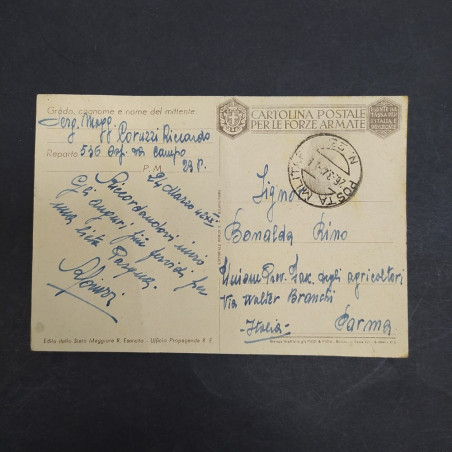 Grado, cognome e nome del mittente
Serg. Magg.
Peruzzi Riccardo
Reparto 536 Osp. da Campo
P. M. 23 P.
25 Marzo
Ricordandovi invio
gli auguri più fervidi per
una lieta Pasqua.
Edita dallo Stato Maggiore R. Esercito - Ufficio Propaganda R. E.
CARTOLINA POSTALE
PER LE FORZE ARMATE
ESENTE DA
TASSA PER
L'ITALIA E
POSTA MILITARE N. 23
Signor
Bonaldo Rino
Unione Prov. Fasc. degli agricoltori
Via Walter Branchi
Italia Parma